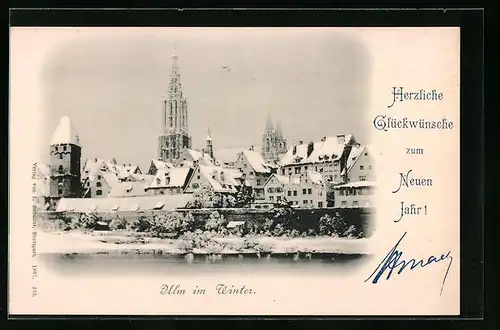 Herzliche
Glückwünsche
zum
Neuen
Jahr!
Ulm im Winter.
Verlag von
Stuttgart. 1897.